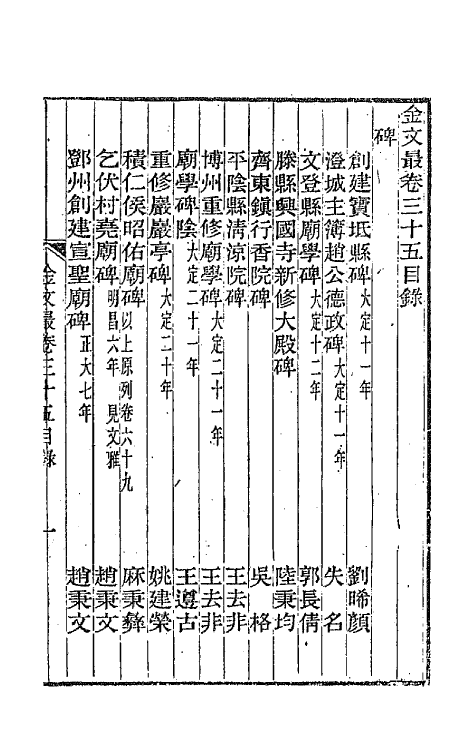 金文最卷三十五目錄
碑
創建寶坻縣碑大定十一年 劉晞顏
澄城主簿趙公德政碑大定十一年 失名
文登縣廟學碑大定十二年 郭長倩
滕縣興國寺新修大殿碑 陸秉均
齊東鎮行香院碑 吳格
平陰縣清涼院碑 王去非
博州重修廟學碑大定二十一年 王去非
廟學碑陰大定二十一年 王遵古
重修巖巖亭碑大定二十年 姚建榮
積仁侯昭佑廟碑以上原列卷六十九 麻秉彝
乞伏村堯廟碑明昌六年 見文雅 趙秉文
鄧州創建宣聖廟碑正大七年 趙秉文
金文最卷三十五目錄 一